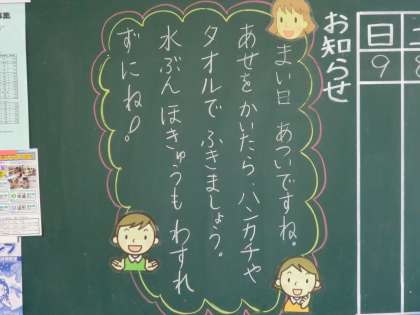 日
9
お知らせ
まい日 あついですね。
あせを かいたら、ハンカチや
タオルで ふきましょう。
水ぶん ほきゅうも わすれ
ずにね!